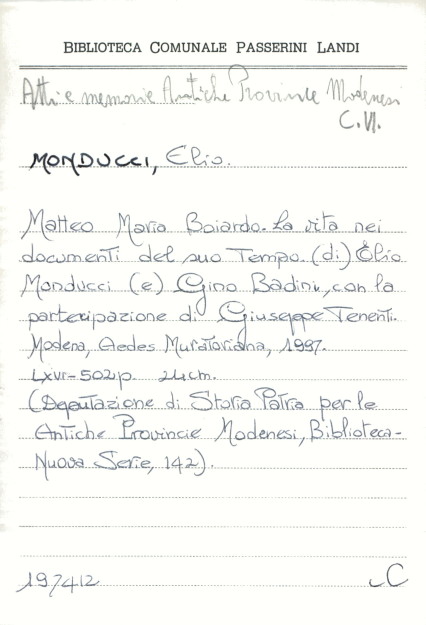 BIBLIOTECA COMUNALE PASSERINI LANDI
Atti e memorie Antiche Provincie Modenesi
C.VI.
MONDUCCI, Elio.
Matteo Maria Boiardo. La vita nei
documenti del suo Tempo. (di) Elio
Monducci (e) Gino Badini, con la
partecipazione di Giuseppe Tenenti.
Modena, Aedes Muratoriana, 1997.
LXVI-502p. 24cm.
(Deputazione di Storia Patria per le
Antiche Provincie Modenesi, Biblioteca-
Nuova Serie, 142).
197412